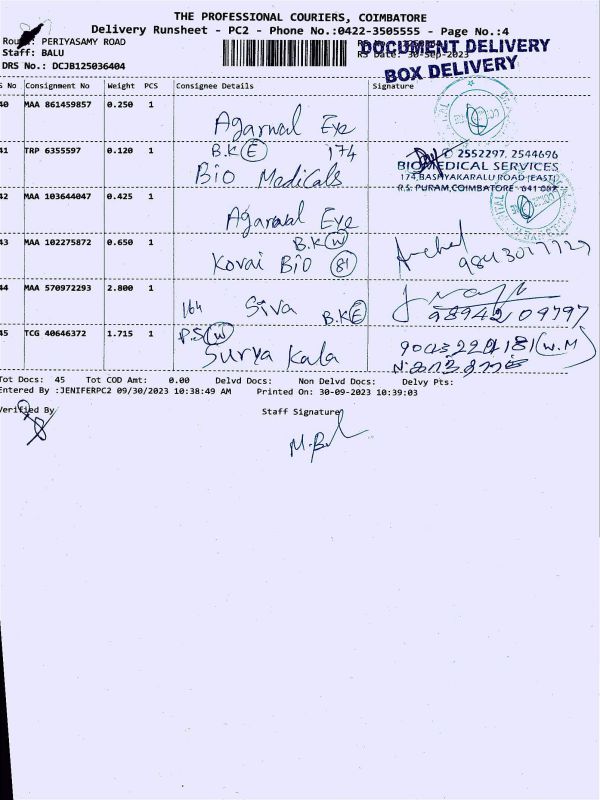 THE PROFESSIONAL COURIERS, COIMBATORE
Delivery Runsheet - PC2 - Phone No.:0422-3505555 - Page No.:4
Route: PERIYASAMY ROAD
Staff: BALU
RS Date: 30-Sep-2023
DOCUMENT DELIVERY
BOX DELIVERY
DRS No.: DCJB125036404
S No Consignment No Weight PCS Consignee Details Signature
40 MAA 861459857 0.250 1
Agarwal Eye
41 TRP 6355597 0.120 1 B.K E 174
Bio Medicals
✆ 2552297, 2544696
BIOMEDICAL SERVICES
174, BASHYAKARALU ROAD (EAST)
R.S. PURAM, COIMBATORE - 641 002
42 MAA 103644047 0.425 1
Agarwal Eye
43 MAA 102275872 0.650 1 B.K W
Kovai Bio 81
9843017727
44 MAA 570972293 2.800 1
164 Siva B.K E
98942 09797
45 TCG 40646372 1.715 1 P.S W
Surya Kala
(W.M)
Tot Docs: 45 Tot COD Amt: 0.00 Delvd Docs: Non Delvd Docs: Delvy Pts:
Entered By :JENIFERPC2 09/30/2023 10:38:49 AM Printed On: 30-09-2023 10:39:03
Verified By Staff Signature